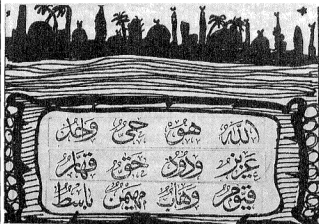 الله هو حي واحد
عزيز ودود حق قهار
قيوم وهاب مهيمن باسط